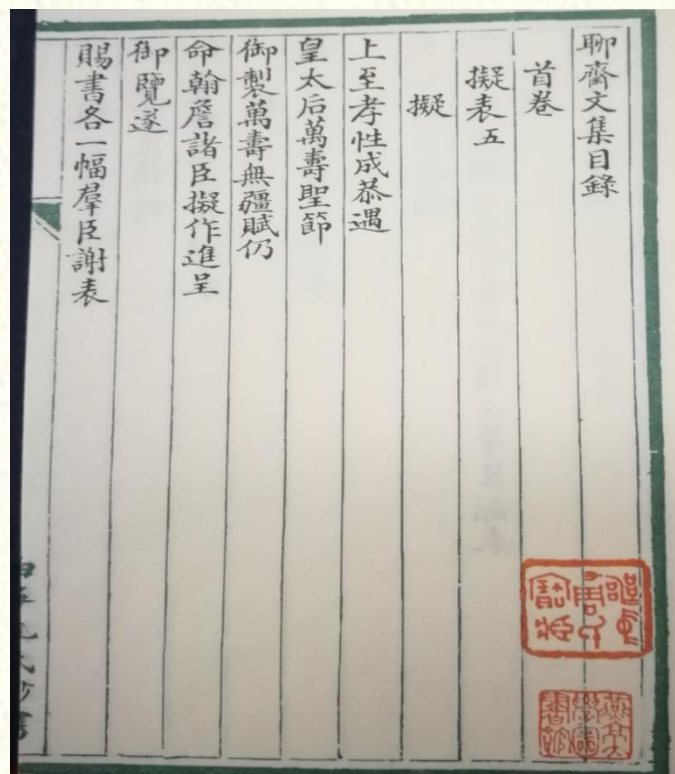 聊齋文集目錄
首卷
擬表五
擬
上至孝性成恭遇
皇太后萬壽聖節
御製萬壽無疆賦仍
命翰詹諸臣擬作進呈
御覽遂
賜書各一幅羣臣謝表